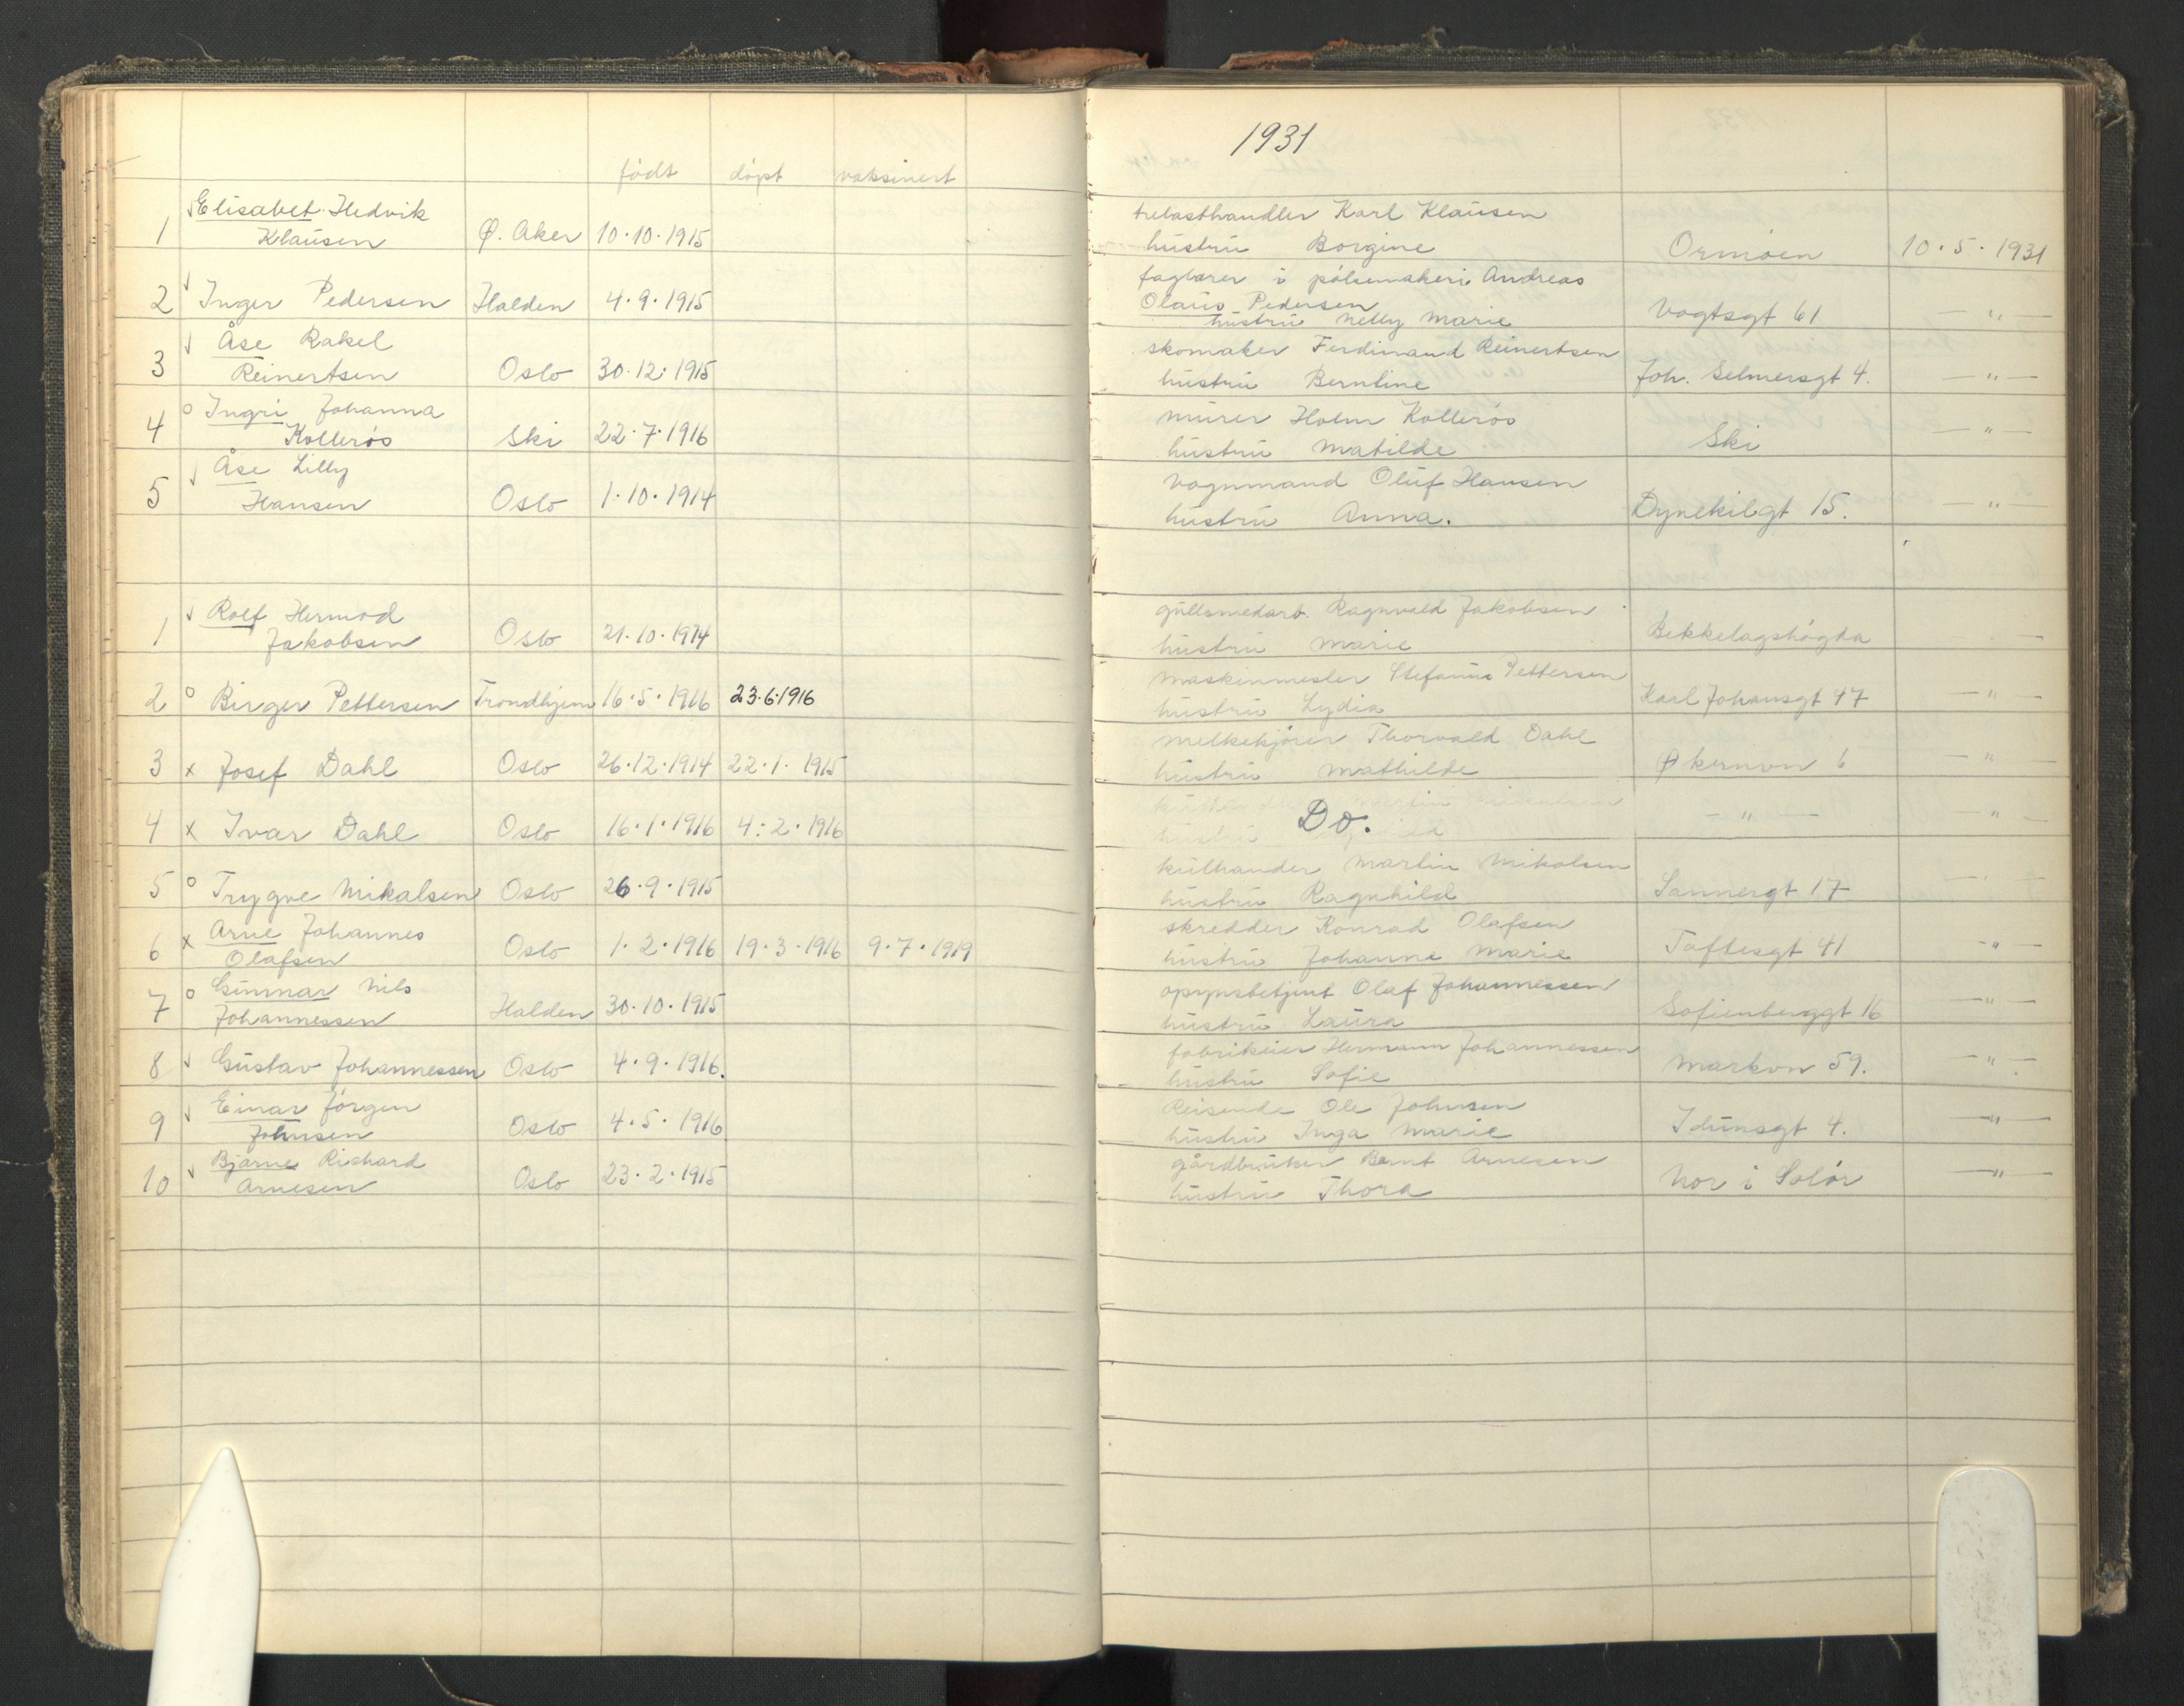 1931
født døpt vaksinert
Elisabet Hedvik
1 Klausen Ø. Aker 10.10.1915
2 Inger Pedersen Halden 4.9.1915
Åse Rakel
3 Reinertsen Oslo 30.12.1915
o Ingri Johanna
4 Kollerøs Ski 22.7.1916
Åse Lilly
5 Hansen Oslo 1.10.1914
Rolf Hermod
1 Jakobsen Oslo 21.10.1914
2 o Birger Pettersen Trondhjem 16.5.1916 23.6.1916
3 x Josef Dahl Oslo 26.12.1914 22.1.1915
4 x Ivar Dahl Oslo 16.1.1916 4.2.1916
5 o Trygve Mikalsen Oslo 26.9.1915
x Arne Johannes
6 Olafsen Oslo 1.2.1916 19.3.1916 9.7.1919
o Gunnar Nils
7 Johannessen Halden 30.10.1915
8 Gustav Johannessen Oslo 4.9.1916.
Einar Jörgen
9 Johnsen Oslo 4.5.1916
Bjarne Richard
10 Arnesen Oslo 23.2.1915
trelasthandler Karl Klausen
hustru Borgine Ormøen 10.5.1931
faglærer i pølsemakeri Andreas
Olaus Pedersen
hustru Nelly Marie Vogtsgt 61 — " —
skomaker Ferdinand Reinertsen
hustru Berntine Joh. Selmersgt 4. — " —
murer Holm Kollerøs
hustru Matilde Ski — " —
vognmand Oluf Hansen
hustru Anna. Dynekilgt 15. — "
gullsmedarb. Ragnvald Jakobsen
hustru Marie Bekkelagshøgda
maskinmester Stefanus Pettersen
hustru Lydia Karl Johansgt 47 — " —
melkekjører Thorvald Dahl
hustru Mathilde Økernvn 6 — " —
Do. — " — — " —
kulhandler Martin Mikalsen
hustru Ragnhild Sannergt 17
skredder Konrad Olafsen
hustru Johanne Marie Toftesgt 41 — " —
opsynsbetjent Olaf Johannessen
hustru Laura Sofienberggt 16 — " —
fabrikeier Hermann Johannessen
hustru Sofie Markvn 59. — " —
Reisende Ole Johnsen
hustru Inga Marie Idunsgt 4. — " —
gårdbruker Bernt Arnesen
hustru Thora Nor i Solør — " —